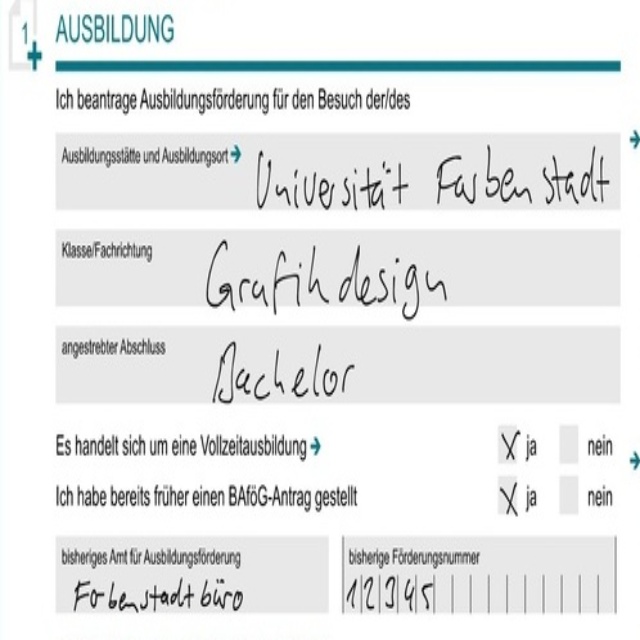 1 AUSBILDUNG
Ich beantrage Ausbildungsförderung für den Besuch der/des
Ausbildungsstätte und Ausbildungsort → Universität Farbenstadt
Klasse/Fachrichtung Grafikdesign
angestrebter Abschluss Bachelor
Es handelt sich um eine Vollzeitausbildung → X ja nein
Ich habe bereits früher einen BAföG-Antrag gestellt X ja nein
bisheriges Amt für Ausbildungsförderung bisherige Förderungsnummer
Farbenstadtbüro 12345